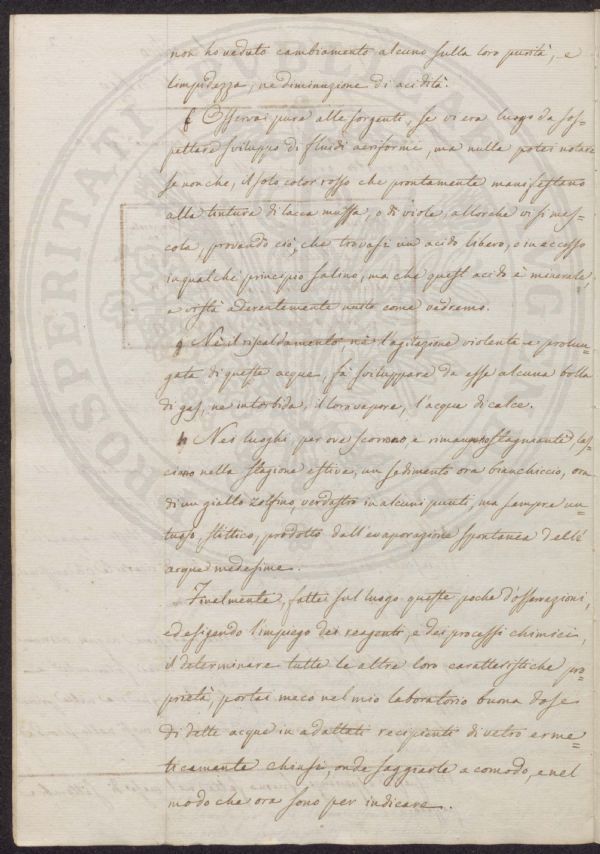 non ho veduto cambiamento alcuno sulla loro purità, e
limpidezza, ne diminuzione di acidità.
f Osservai pure alle sorgenti, se vi era luogo da sos=
pettare sviluppo di fluidi aeriformi, ma nulla potei notare
se non che, il solo color rosso che prontamente manifestano
alla tintura di lacca muffa, o di viole, allorche vi si mes=
cola, provando ciò, che trovasi un acido libero, o in eccesso
in qualche principio salino, ma che quest' acido è minerale,
e vi stà aderentemente unito come vedremo.
g Nè il riscaldamento nè l'agitazione violenta e prolun=
gata di queste acque, fà sviluppare da esse alcuna bolla
di gas, ne intorbida, il loro vapore, l'acqua di calce.
h Nei luoghi, per ove scorrono e rimangono stagnante, las=
ciano nella stagione estiva, un sedimento ora bianchiccio, ora
di un giallo zolfino, verdastro in alcuni punti, ma sempre un=
tuoso, stittico, prodotto dall'evaporazione spontanea delle
acque medesime.
Finalmente, fattei sul luogo queste poche d'osservazioni,
ed esigendo l'impiego dei reagenti, e dei processi chimici,
il determinare tutte le altre loro caratteristiche pro=
prietà, portai meco nel mio laboratorio buona dose
di dette acque in adattati recipienti di vetro erme=
ticamente chiusi, onde saggiarle a comodo, e nel
modo che ora sono per indicare.
PROSPERITATI PUBLICAE AUGENDAE